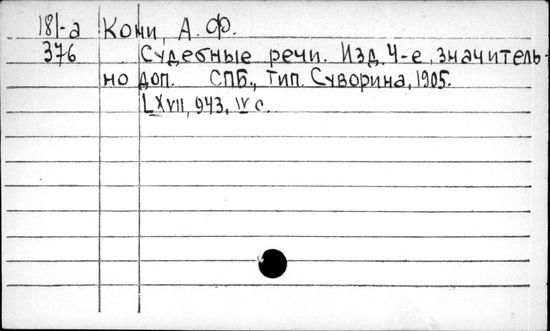 181-а Кони, А. Ф.
376 Судебные речи. Изд. 4-е, значитель-
но доп. СПБ., Тип. Суворина, 1905.
LXVII, 943, IV с.